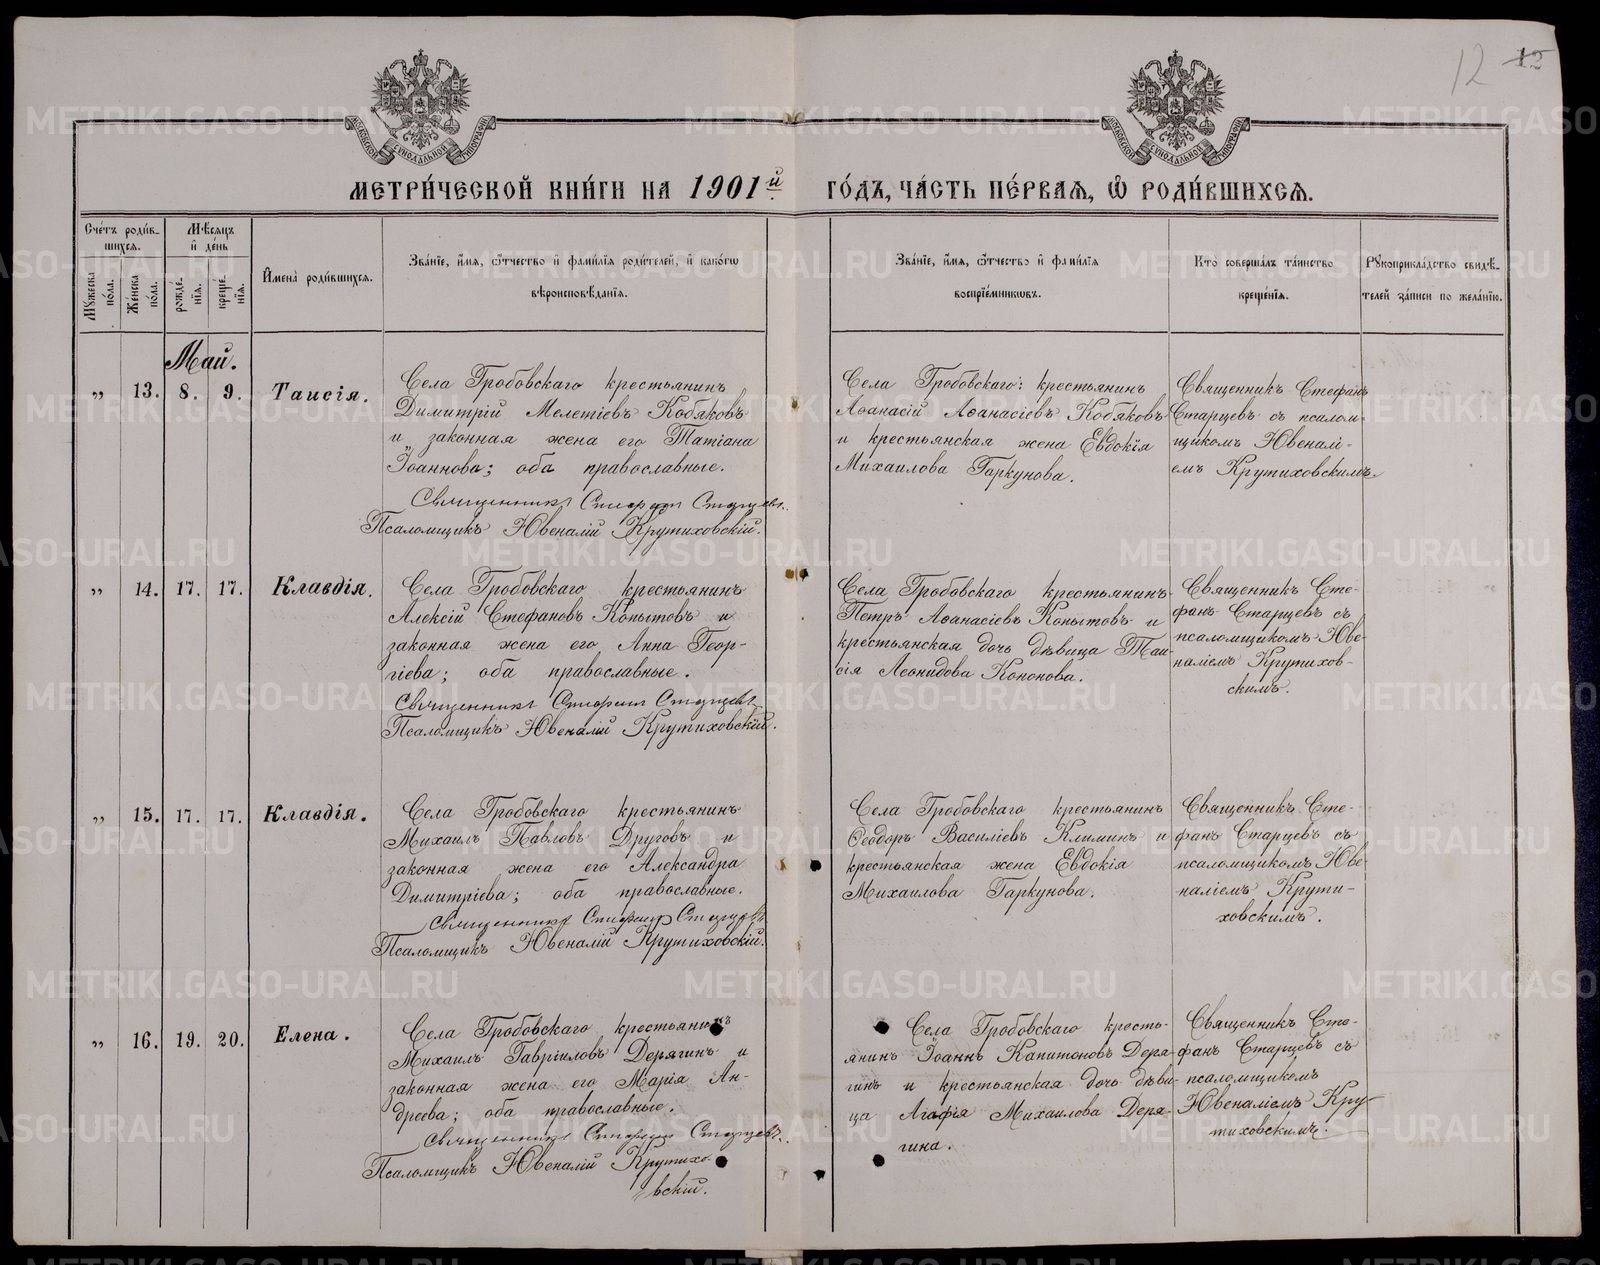 12 12
МОСКОВСКОЙ СУНОДАЛЬНОЙ ТИПОГРАФІИ
МОСКОВСКОЙ СУНОДАЛЬНОЙ ТИПОГРАФІИ
МЕТРИ́ЧЕСКОЙ КНИ́ГИ НА 1901й ГО́ДЪ, ЧА́СТЬ ПЕ́РВАѦ, Ѡ҆ РОДИ́ВШИХСѦ.
Сче́тъ роди́в-
шихсѧ.
Мꙋжеска
пола.
Же́нска
пола.
Мѣ́сѧцъ
и҆ де́нь
рожде-
нїѧ.
креще-
нїѧ.
И҆мена̀ роди́вшихсѧ.
Зва́нїе, и҆́мѧ, ѻ҆́тчество и҆ фами́лїѧ роди́телей, и҆ како́гѡ
вѣроисповѣ́данїѧ.
Зва́нїе, и҆́мѧ, ѻ҆́тчество и҆ фами́лїѧ
воспрїе́мниковъ.
Кто̀ соверша́лъ та́инство
креще́нїѧ.
Рꙋкоприкла́дство свидѣ́-
телей за́писи по жела́нїю.
Май.
„ 13. 8. 9. Таисія.
Села Гробовскаго крестьянинъ
Димитрій Мелетіевъ Кобяковъ
и законная жена его Татіана
Іоаннова; оба православные.
Священникъ Стефанъ Старцевъ.
Псаломщикъ Ювеналій Крутиховскій.
Села Гробовскаго: крестьянинъ
Аѳанасій Аѳанасіевъ Кобяковъ
и крестьянская жена Евдокія
Михаилова Гаркунова.
Священникъ Стефанъ
Старцевъ съ псалом-
щикомъ Ювеналі-
емъ Крутиховскимъ
„ 14. 17. 17. Клавдія.
Села Гробовскаго крестьянинъ
Алексій Стефановъ Копытовъ и
законная жена его Анна Геор-
гіева; оба православные.
Священникъ Стефанъ Старцевъ
Псаломщикъ Ювеналій Крутиховскій.
Села Гробовскаго крестьянинъ
Петръ Аѳанасіевъ Копытовъ и
крестьянская дочь дѣвица Таи-
сія Леонидова Кононова.
Священникъ Сте-
фанъ Старцевъ съ
псаломщикомъ Юве-
наліемъ Крутихов-
скимъ.
„ 15. 17. 17. Клавдія.
Села Гробовскаго крестьянинъ
Михаилъ Павловъ Друговъ и
законная жена его Александра
Димитріева; оба православные.
Священникъ Стефанъ Старцевъ
Псаломщикъ Ювеналій Крутиховскій.
Села Гробовскаго крестьянинъ
Ѳеодоръ Василіевъ Климинъ и
крестьянская жена Евдокія
Михаилова Гаркунова.
Священникъ Сте-
фанъ Старцевъ съ
псаломщикомъ Юве-
наліемъ Крути-
ховскимъ.
„ 16. 19. 20. Елена.
Села Гробовскаго крестьянинъ
Михаилъ Гавріиловъ Дерягинъ и
законная жена его Марія Ан-
дреева; оба православные.
Священникъ Стефанъ Старцевъ.
Псаломщикъ Ювеналій Крутихо-
вскій.
Села Гробовскаго кресть-
янинъ Іоаннъ Капитоновъ Деря-
гинъ и крестьянская дочь дѣви-
ца Агафія Михаилова Деря-
гина.
Священникъ Сте-
фанъ Старцевъ съ
псаломщикомъ
Ювеналіемъ Кру-
тиховскимъ.